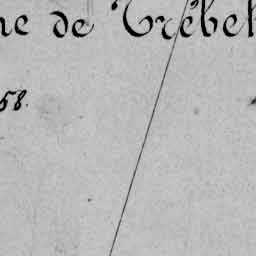 ne de Trébel
58.